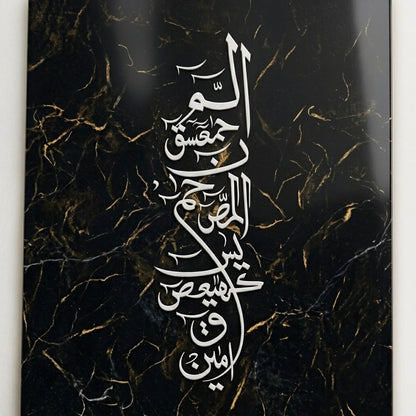 الٓمّ
حمعسق
ن
حم
المص
يس
كهيعص
ق
امين